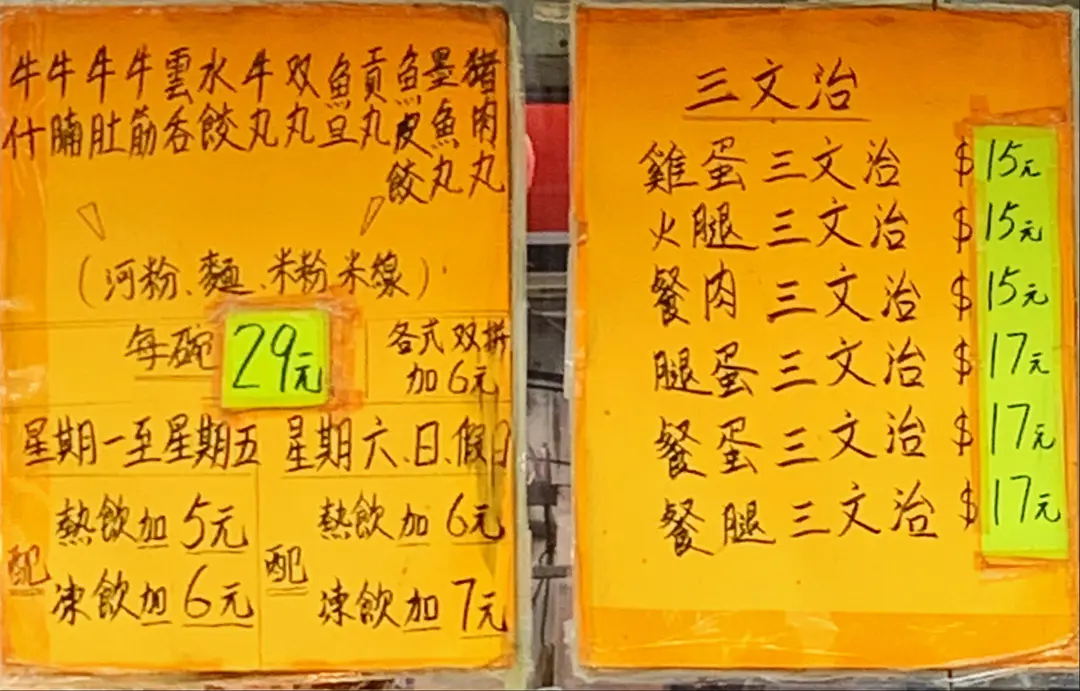 牛什
牛腩
牛肚
牛筋
雲吞
水餃
牛丸
双丸
魚旦
貢丸
魚皮餃
墨魚丸
猪肉丸
(河粉、麵、米粉、米線)
每碗 29元
各式双拼
加6元
星期一至星期五
配
熱飲加5元
凍飲加6元
星期六、日、假日
配
熱飲加6元
凍飲加7元
三文治
雞蛋三文治 $15元
火腿三文治 $15元
餐肉三文治 $15元
腿蛋三文治 $17元
餐蛋三文治 $17元
餐腿三文治 $17元